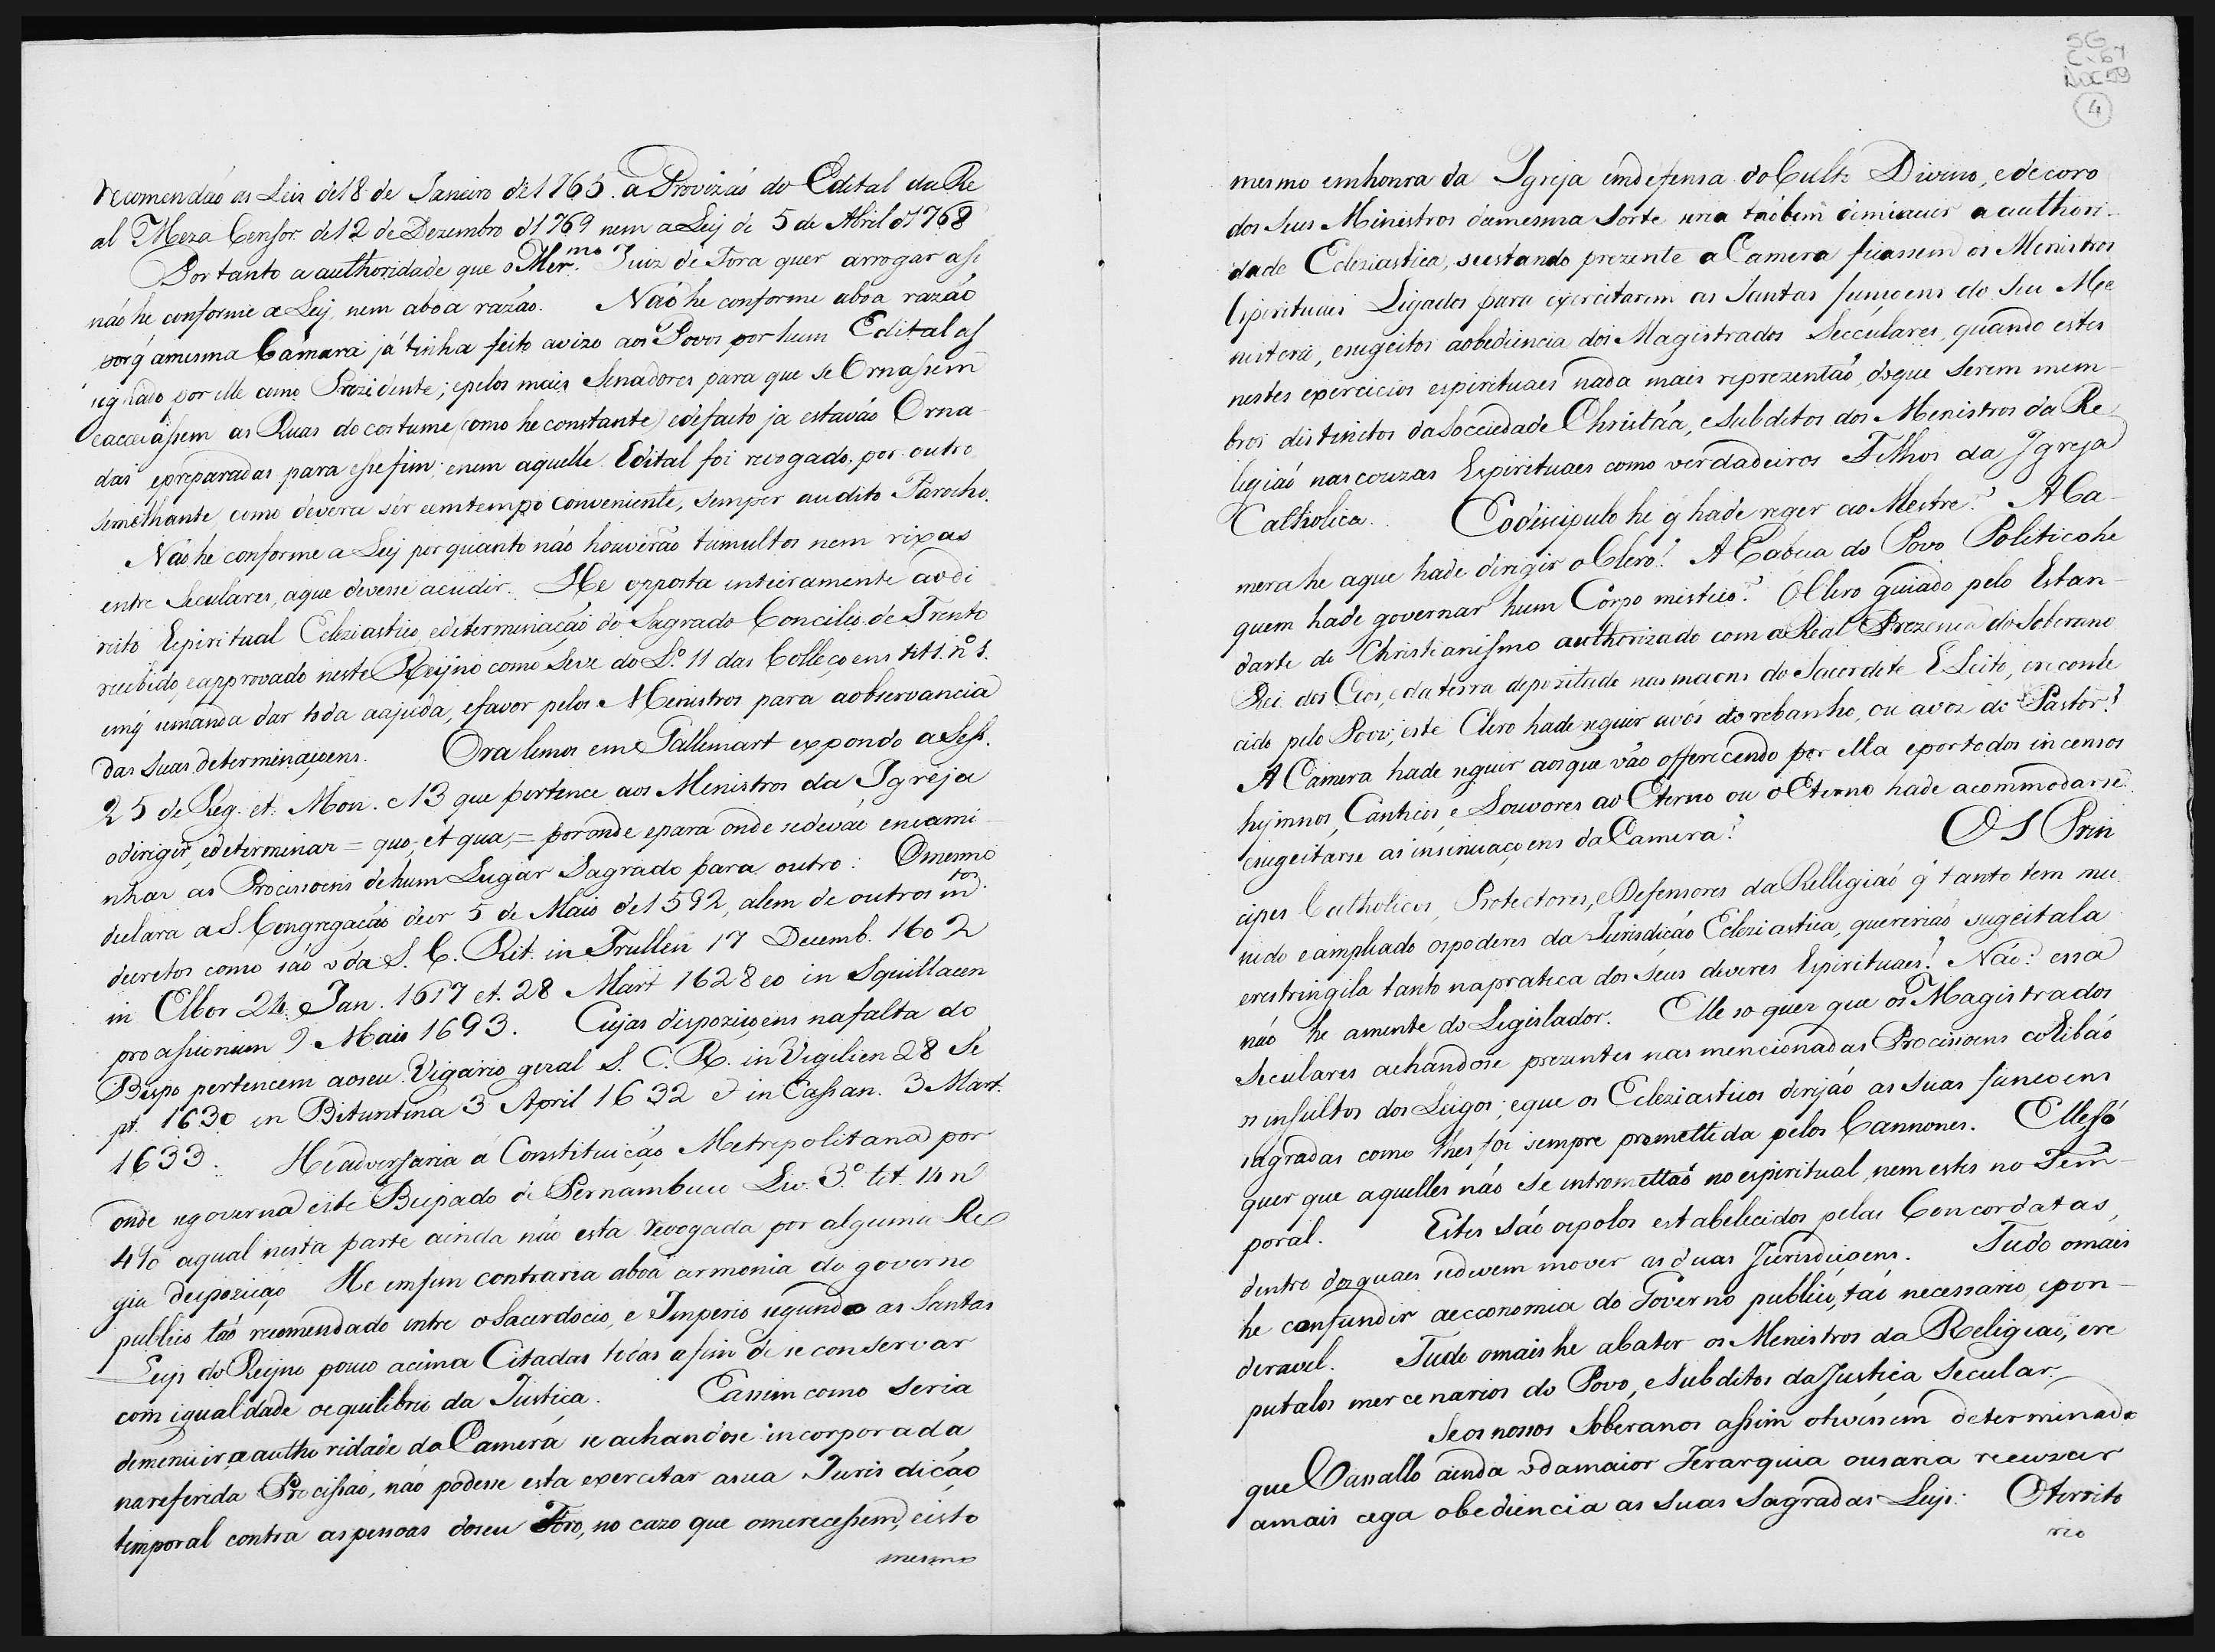 recomendaõ as Leis de18 de Janeiro de1765. a Provizaõ do Edital da Re
al Meza Censor. de12 de Dezembro d1769 nem a Ley de 5 de Abril d1768
Por tanto a authoridade que o Mer.mo Juiz de Fora quer arrogar asi
náo he conforme a Ley, nem aboa razáo. Náo he conforme aboa razáo
porq̃ amesma Câmara já tinha feito avizo aos Povos por hum Edital as
signado por elle como Prezidente; epelos mais Senadores para que se Ornassem
eaceiassem as Ruas do costume (como he constante) edefacto ja estaváo Orna-
das epreparadas para esse fim; enem aquelle Edital foi revogado por outro
semelhante, como devera sêr eemtempo conveniente, semper audito Parocho.
Náo he conforme a Ley porquanto náo houveráo tumultos nem rixas
entre Seculares, aque devesse acudir. He opposta inteiramente aodi
reito Espiritual Ecleziastico, edeterminaçáo do Sagrado Concilio de Trento
recebido, eapprovado neste Reijno como Seve do L.º 11 das Colleçoens tit 1. nº 1.
emq̃ semanda dar toda aajuda, efavor pelos Ministros para aobservancia
das suas determinaçoens. Ora lemos em Gallemart expondo a Sess.
25 de Reg. et. Mon. c 13 que pertence aos Ministros da Igreja
odirigir, edeterminar = quo, et qua, = poronde epara onde sedeváo encami-
nhar as Procissoens dehum Lugar Sagrado para outro. Omesmo
declara a S. Congregaçáo decr 5 de Maio de1592, alem de outros m.tos
decretos como sáo o da S. C. Rit. in Trullen 17 Decemb. 1602
in Elbor 24 Jan. 1617 et. 28 Mart 1628 eo in Squillacen
pro assienium 9 Maii 1693. Cujas dispoziçoens nafalta do
Bispo pertencem aoseu Vigario geral S. C. R. in Vigilien 28 Se
pt. 1630 in Bituntina 3 April 1632 & in Cassan. 3 Mart.
1633. He adversaria á Constituiçáo Metropolitana por
onde segoverna este Bispado de Pernambuco Liv. 3º tit. 14 nº
490 aqual nesta parte ainda náo esta revogada por alguma Re
gia dispoziçáo He emfim contraria aboa armonia do governo
publico táo recomendado entre o Sacerdocio, e Imperio segundo as Santas
Leys do Reijno pouco acima Citadas afim de se conservar
com igualdade oequilibrio da Justiça. Eassim como seria
demenuir aauthoridade da Camera se achandose incorporada
nareferida Procissáo, náo podesse esta exercitar asua Jurisdiçáo
temporal contra aspessoas doseu Foro, no cazo que omerecessem, eisto
mesmo
SG
Cx 67
DOC 59
4
mesmo emhonra da Igreja emdefensa do Culto Divino, edecoro
dos Seus Ministros damesma Sorte seria taóbem demiuir a authori-
dade Ecleziastica, seestando prezente a Camera ficassem os Menistros
Espirituaes Ligados para exercitarem as Santas funçoens do Seu Me
nisterio, esugeitos aobediencia dos Magistrados Seculares, quando estes
nestes exercicios espirituaes nada mais reprezentáo, doque Serem mem-
bros distinctos daSociedade Christáa, eSubditos dos Menistros da Re
ligiáo nas couzas Espirituaes como verdadeiros Filhos da Igreja
Catholica. Eodiscipulo he q̃ hade reger ao Mestre? A Ca-
mera he aque hade dirigir o Clero? A Cabeca do Povo Politico he
quem hade governar hum Corpo mistico? O Clero guiado pelo Estan-
darte do Christianismo authorizado com a Real Prezenca do Soberano
Rei dos Ceos, eda terra depozitado nas maons do Sacerdote Eleito, ereconhe
cido pelo Povo; este Clero hade seguir avós do rebanho, ou avoz do Pastor?
A Camera hade seguir aosque váo offerecendo por ella eportodos incensos
hijmnos, Canticos, e Louvores ao Eterno ou o Eterno hade acommodarse
esugeitarse as insinuaçoens da Camera? OS Prin
cipes Catholicos, Protectores, e Defensores da Relligiáo q̃ tanto tem mu
nido eampliado ospoderes da Jurisdiçáo Ecleziastica, quereriáo sugeitala
erestringila tanto napratica dos Seus deveres Espirituaes? Náo: essa
náo he amente do Legislador. Elle so quer que os Magistrados
Seculares achandose prezentes nas mencionadas Procissoens cohibáo
os insultos dos Leigos; eque os Ecleziasticos dirijáo as Suas funçoens
sagradas como lhes foi sempre promettida pelos Cannones. Elle só
quer que aquelles náo se intromettáo no espiritual, nem estes no Tem-
poral. Estes Sáo ospolos estabelecidos pelas Concordatas,
dentro dosquaes sedevem mover as duas Jurisdiçoens. Tudo omais
he confundir aeconomia do Governo publico, táo necessario, epon-
deravel. Tudo omais he abater os Menistros da Religiáo, ere
putalos mercenarios do Povo, eSubditos da Justica Secular.
Seos nossos Soberanos assim otivessem determinado
que Vassallo ainda odamaior Jerarquia ousaria recuzar
amais cega obediencia as Suas Sagradas Leys. Oterrito
rio